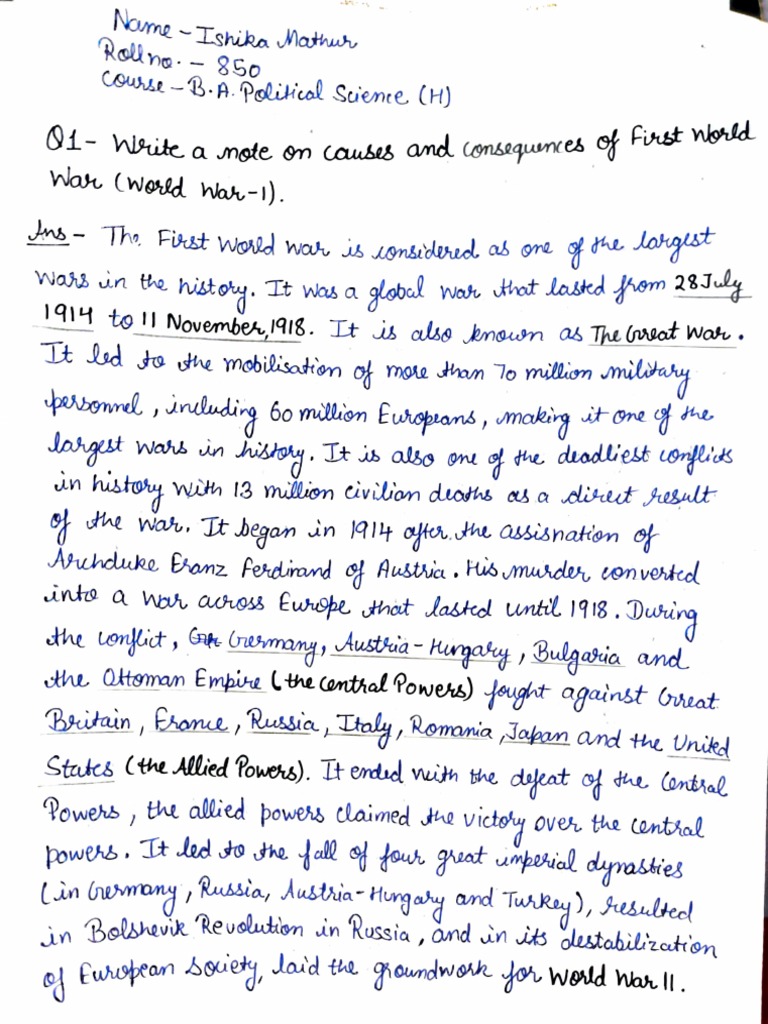 Name - Ishika Mathur
Roll no. - 850
Course - B.A. Political Science (H)
Q1- Write a note on causes and consequences of First World
War (World War-1).
Ans - The First World War is considered as one of the largest
wars in the history. It was a global war that lasted from 28 July
1914 to 11 November, 1918. It is also known as The Great War.
It led to the mobilisation of more than 70 million military
personnel, including 60 million Europeans, making it one of the
largest wars in history. It is also one of the deadliest conflicts
in history with 13 million civilian deaths as a direct result
of the war. It began in 1914 after the assisnation of
Archduke Franz Ferdinand of Austria. His murder converted
into a war across Europe that lasted until 1918. During
the conflict, Germany, Austria-Hungary, Bulgaria and
the Ottoman Empire (the Central Powers) fought against Great
Britain, France, Russia, Italy, Romania, Japan and the United
States (the Allied Powers). It ended with the defeat of the Central
Powers, the allied powers claimed the victory over the central
powers. It led to the fall of four great imperial dynasties
(in Germany, Russia, Austria-Hungary and Turkey), resulted
in Bolshevik Revolution in Russia, and in its destabilization
of European society, laid the groundwork for World War II.